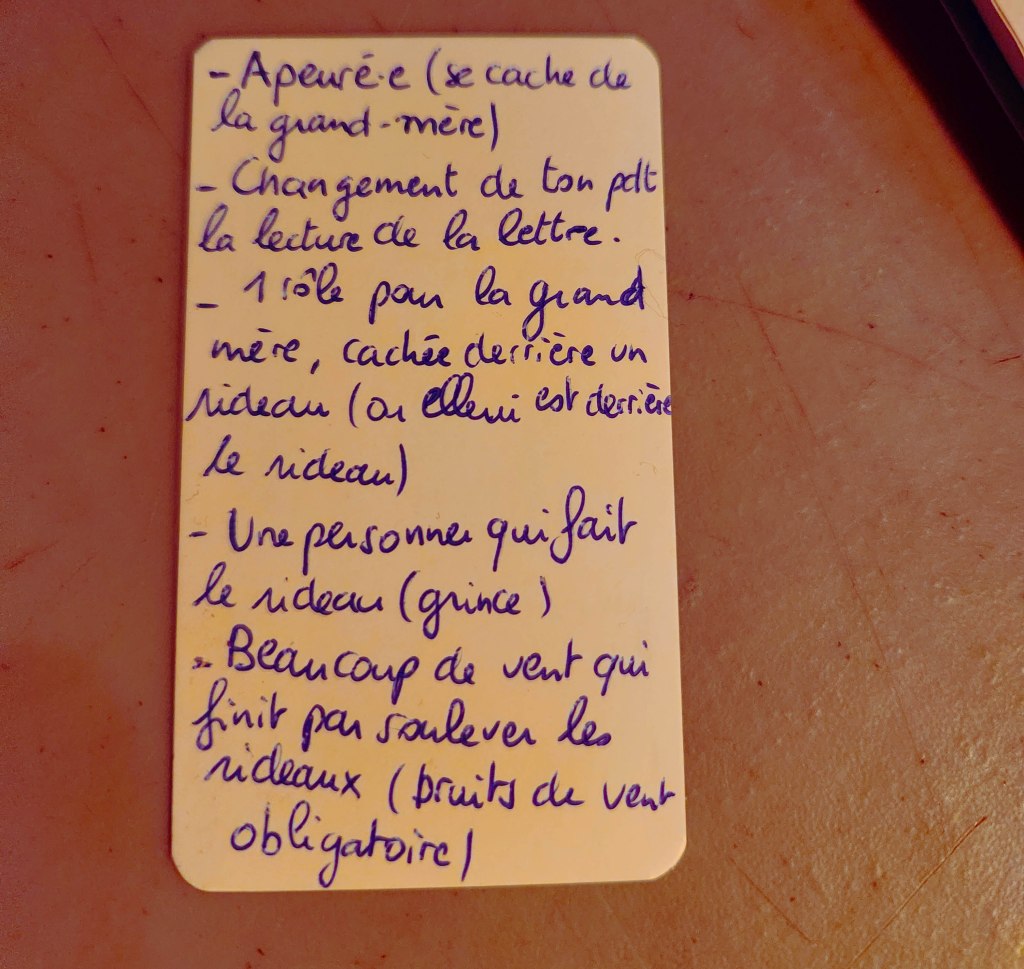 - Apeuré·e (se cache de
la grand-mère)
- Changement de ton pdt
la lecture de la lettre.
- 1 rôle pour la grand
mère, cachée derrière un
rideau (ou est derrière
le rideau)
- Une personne qui fait
le rideau (grince)
- Beaucoup de vent qui
finit par soulever les
rideaux (bruits de vent
obligatoire)